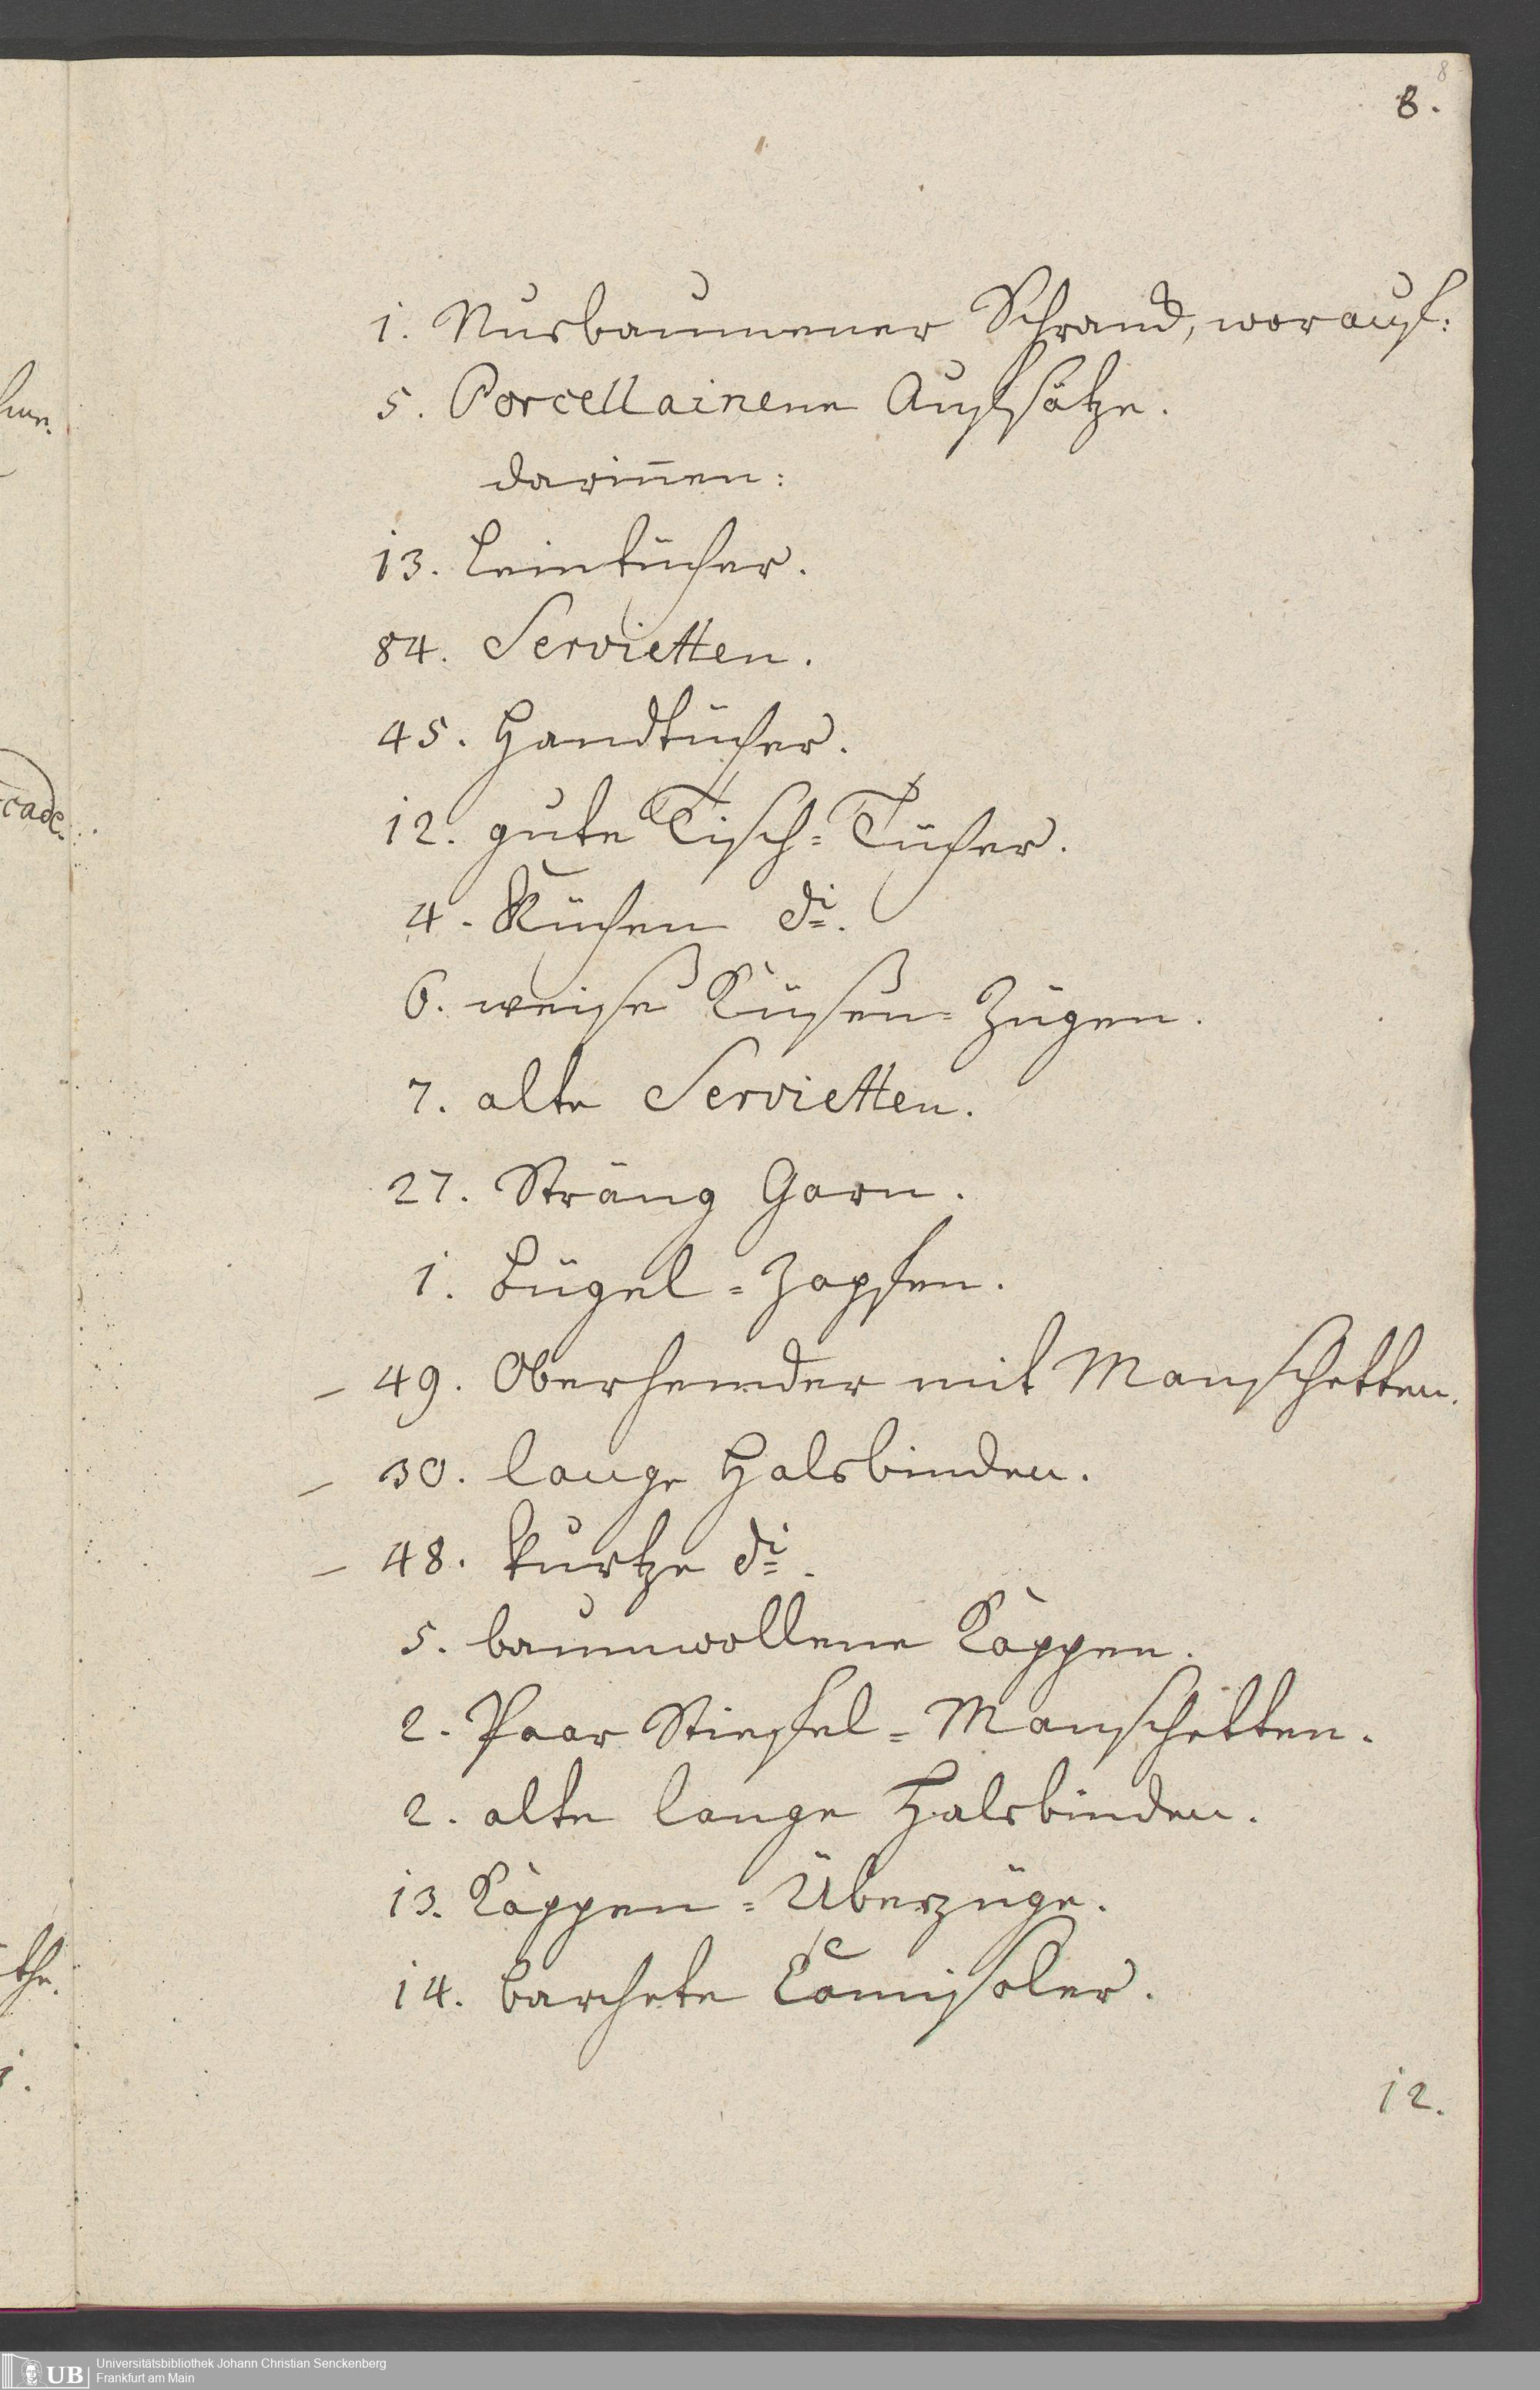 8
8.
1. Nusbaumener Schranck, worauf:
5. Porcellainene Auffsätze.
darin̄en:
13. Leintücher.
84. Servietten.
45. Handtücher.
12. gute Tisch=Tücher.
4. Küchen do.
6. weise Küsen=Zügen.
7. alte Servietten.
27. Sträng Garn.
1. Bügel=Zapfen.
– 49. Oberhemder mit Manschetten.
– 30. lange Halsbinden.
– 48. kurtze do.
5. baumwollene Kappen.
2. Paar Stieffel=Manschetten.
2. alte lange Halsbinden.
13. Kappen=Überzüge.
14. barchete Camisoler.
12.
cade.
the.
UB
Universitätsbibliothek Johann Christian Senckenberg
Frankfurt am Main